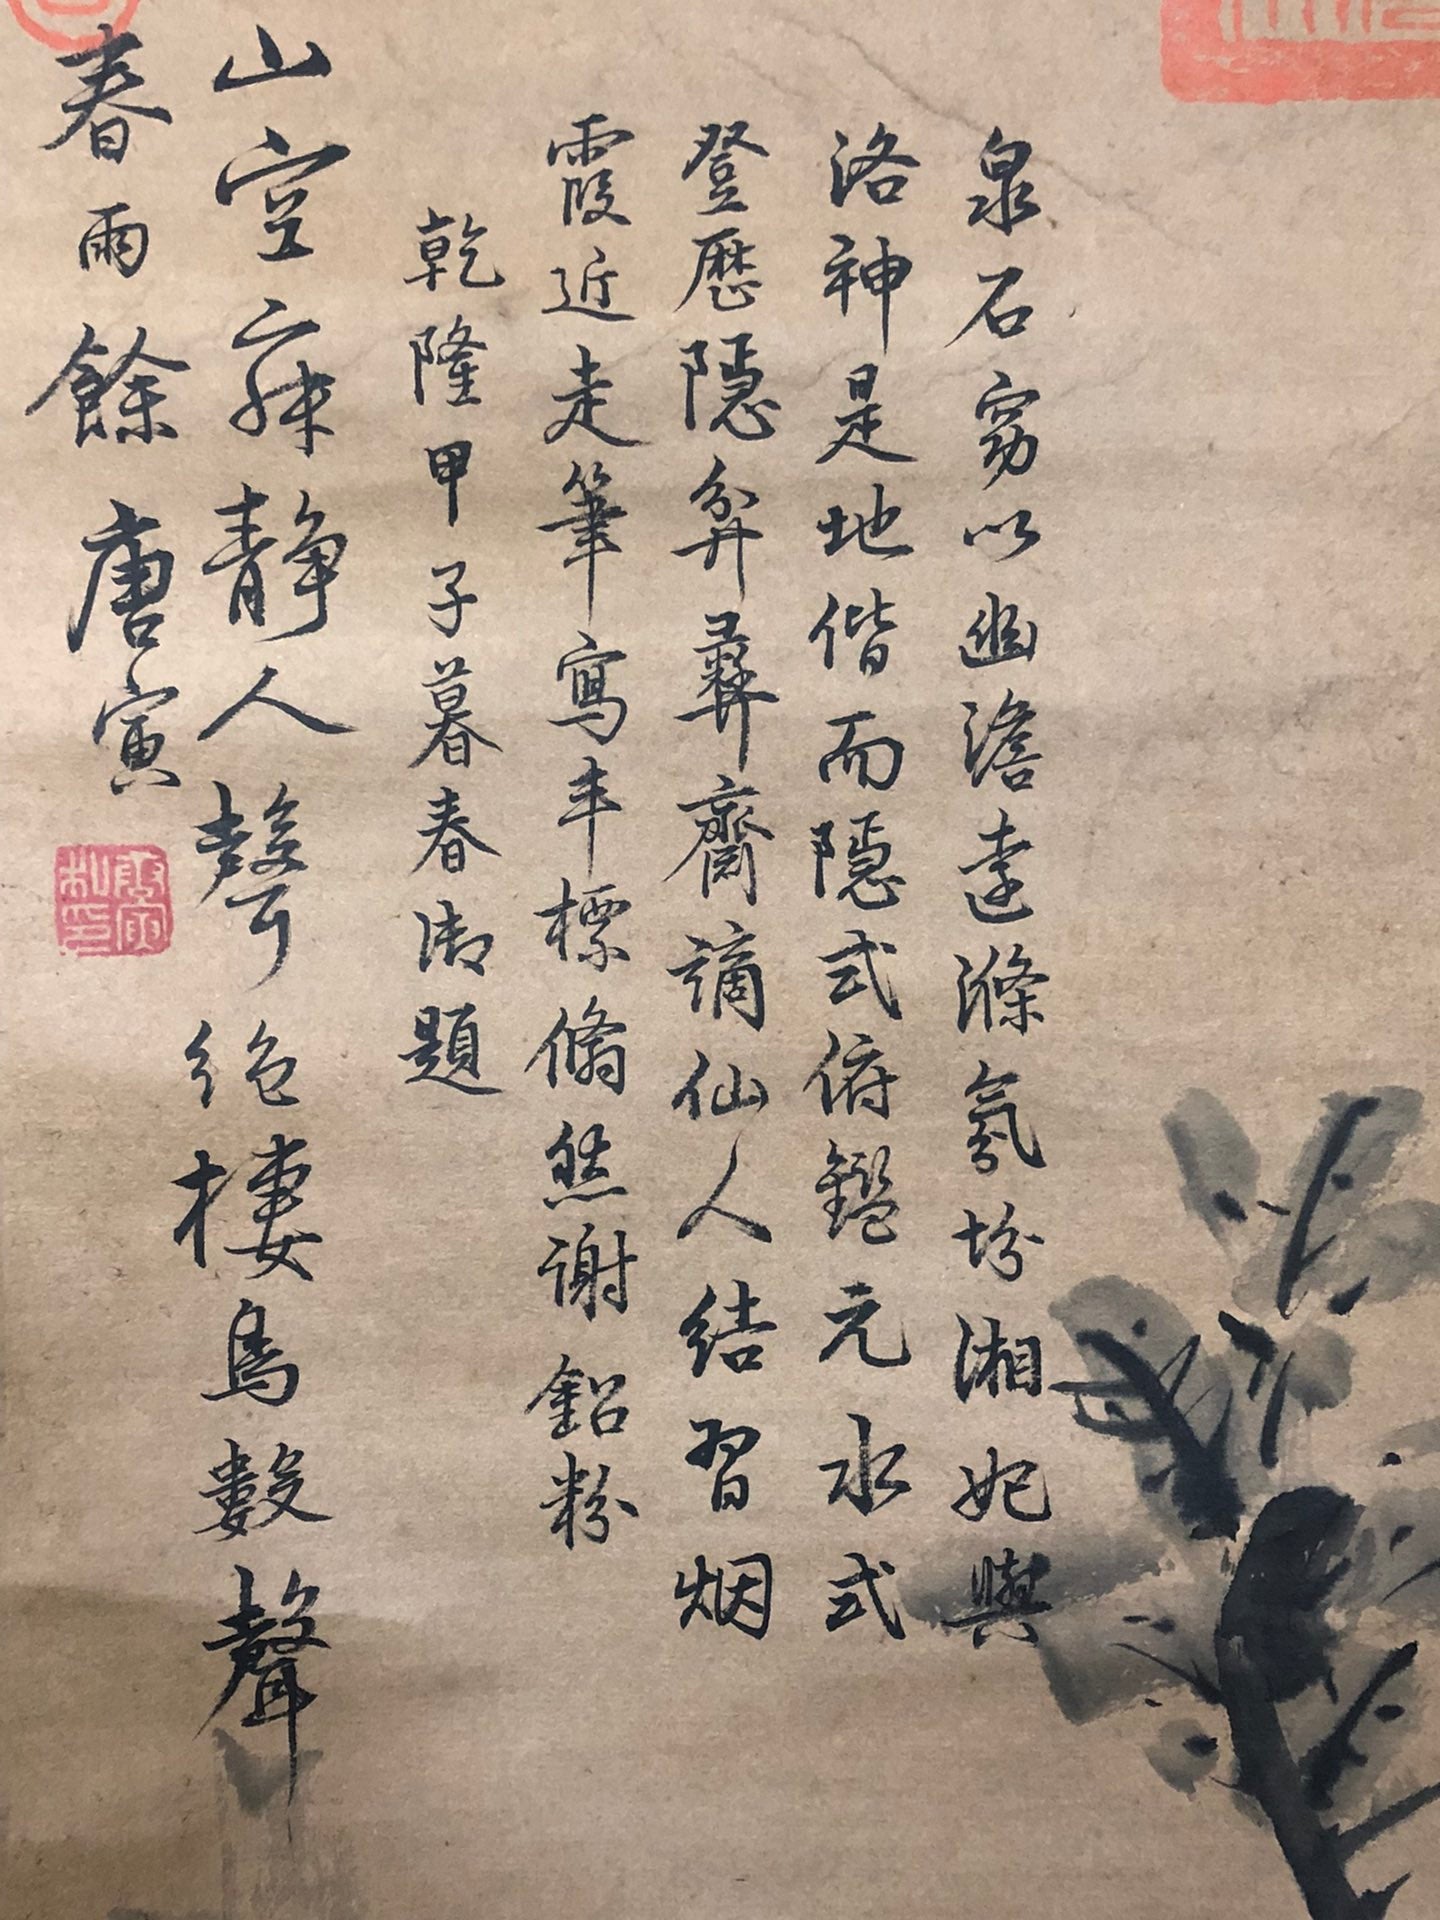 泉石窈以幽澹遠滌氛坋湘妃與
洛神是地偕而隱式俯鑑元水式
登歷隱弅彞齋謫仙人結習烟
霞近走筆寫丰標翛然谢鉛粉
乾隆甲子暮春御題
山空寂静人聲絶棲鳥數聲
春雨餘唐寅